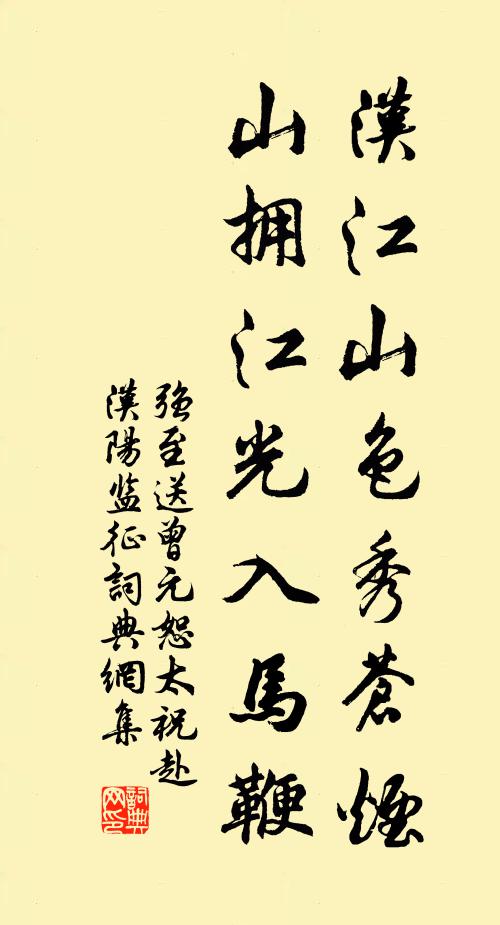 漢江山色秀蒼煙
山拥江光入馬鞭
強至送曾元恕太祝赴
漢陽监征詞典網集
詞典
网印